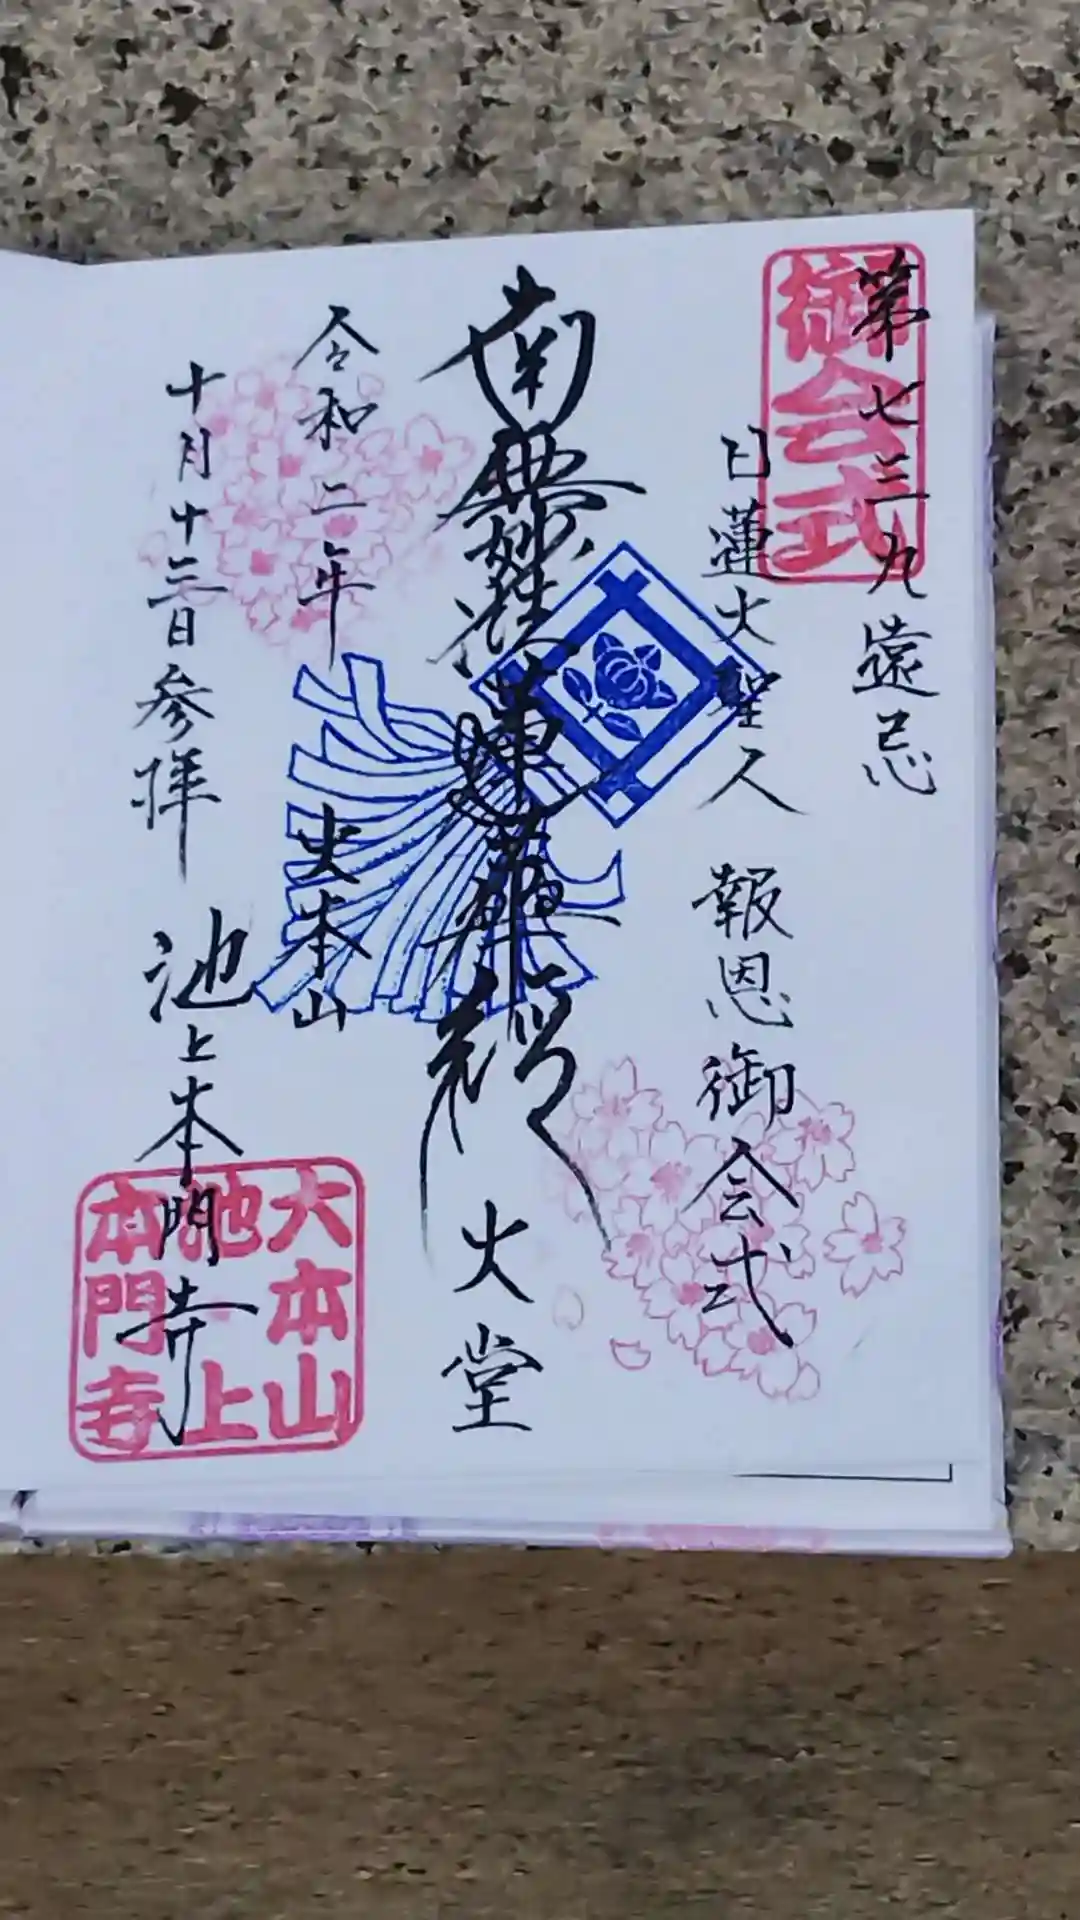 御会式
第七三九遠忌
日蓮大聖人 報恩御会式
南無妙法蓮華経 大堂
令和二年
大本山
十月十三日参拝 池上本門寺
大本山
池上
本門寺